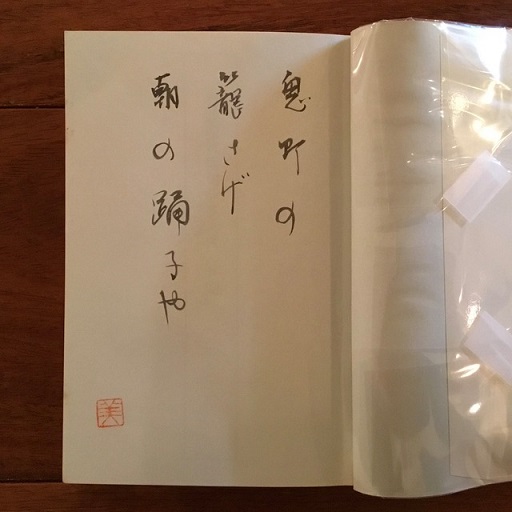 鬼灯の
籠さげ
朝の踊子や
美